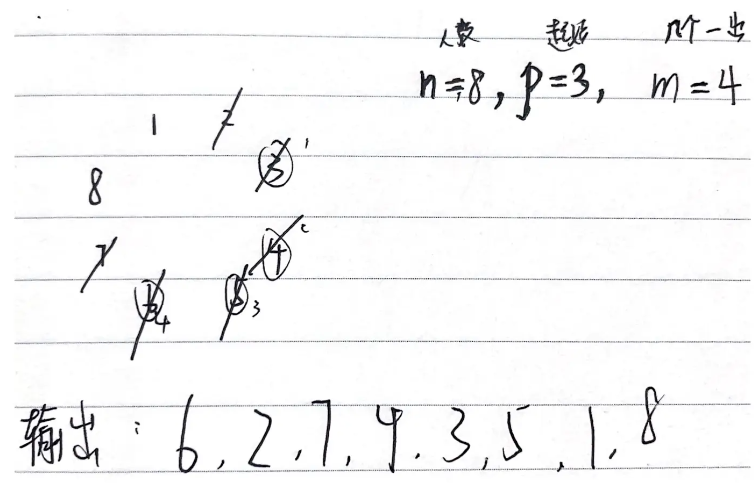 人数 起始 几个一出
n=8, p=3, m=4
1 2
3 1
8
7 4 2
6 4 5 3
输出: 6, 2, 7, 4, 3, 5, 1, 8